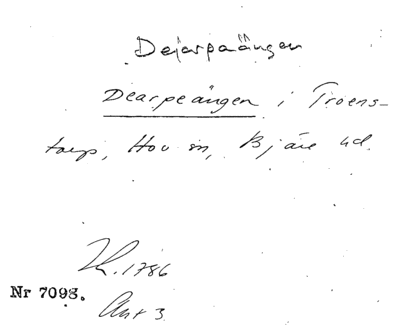 Dejarpaängen
Dearpeängen i Troens-
torp, Hov sn, Bjäre hd.
1786
Nr 7098.
Akt 3